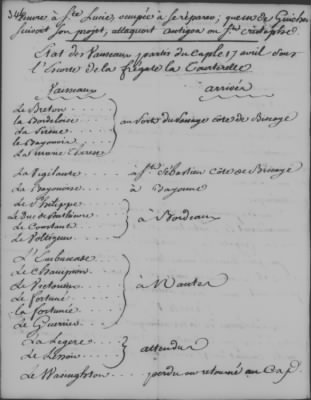 346
œuvre à Ste Lucie, occupée à se réparer; que Mr de Guichen
suivoit son projet, attaquant antigoa ou St cristophe.
Etat des Vaisseaux partis du Cap le 17 avril sous
l'Escorte de la frégate la Courterelle
Vaisseaux
arrivés
Le Breton
La Bordeloise
La Sirène
Le Bayonnois
La Marianne Thérèse
au Port du Passage côte de Biscaye
La Vigilante . . . . à St Sébastien Côte de Biscaye
La Bayonnoise . . . à Bayonne
Le Philippe
Le Duc de
Le Constant
Le Voltigeur
à Bordeaux
L'Embuscade
Le Champion
Le Victorieux
Le Fortuné
La Fortunée
Le Guerrier
à Nantes
La Légère
Le
attendus
Le Wasughton . . . . perdu ou retourné au Cap.